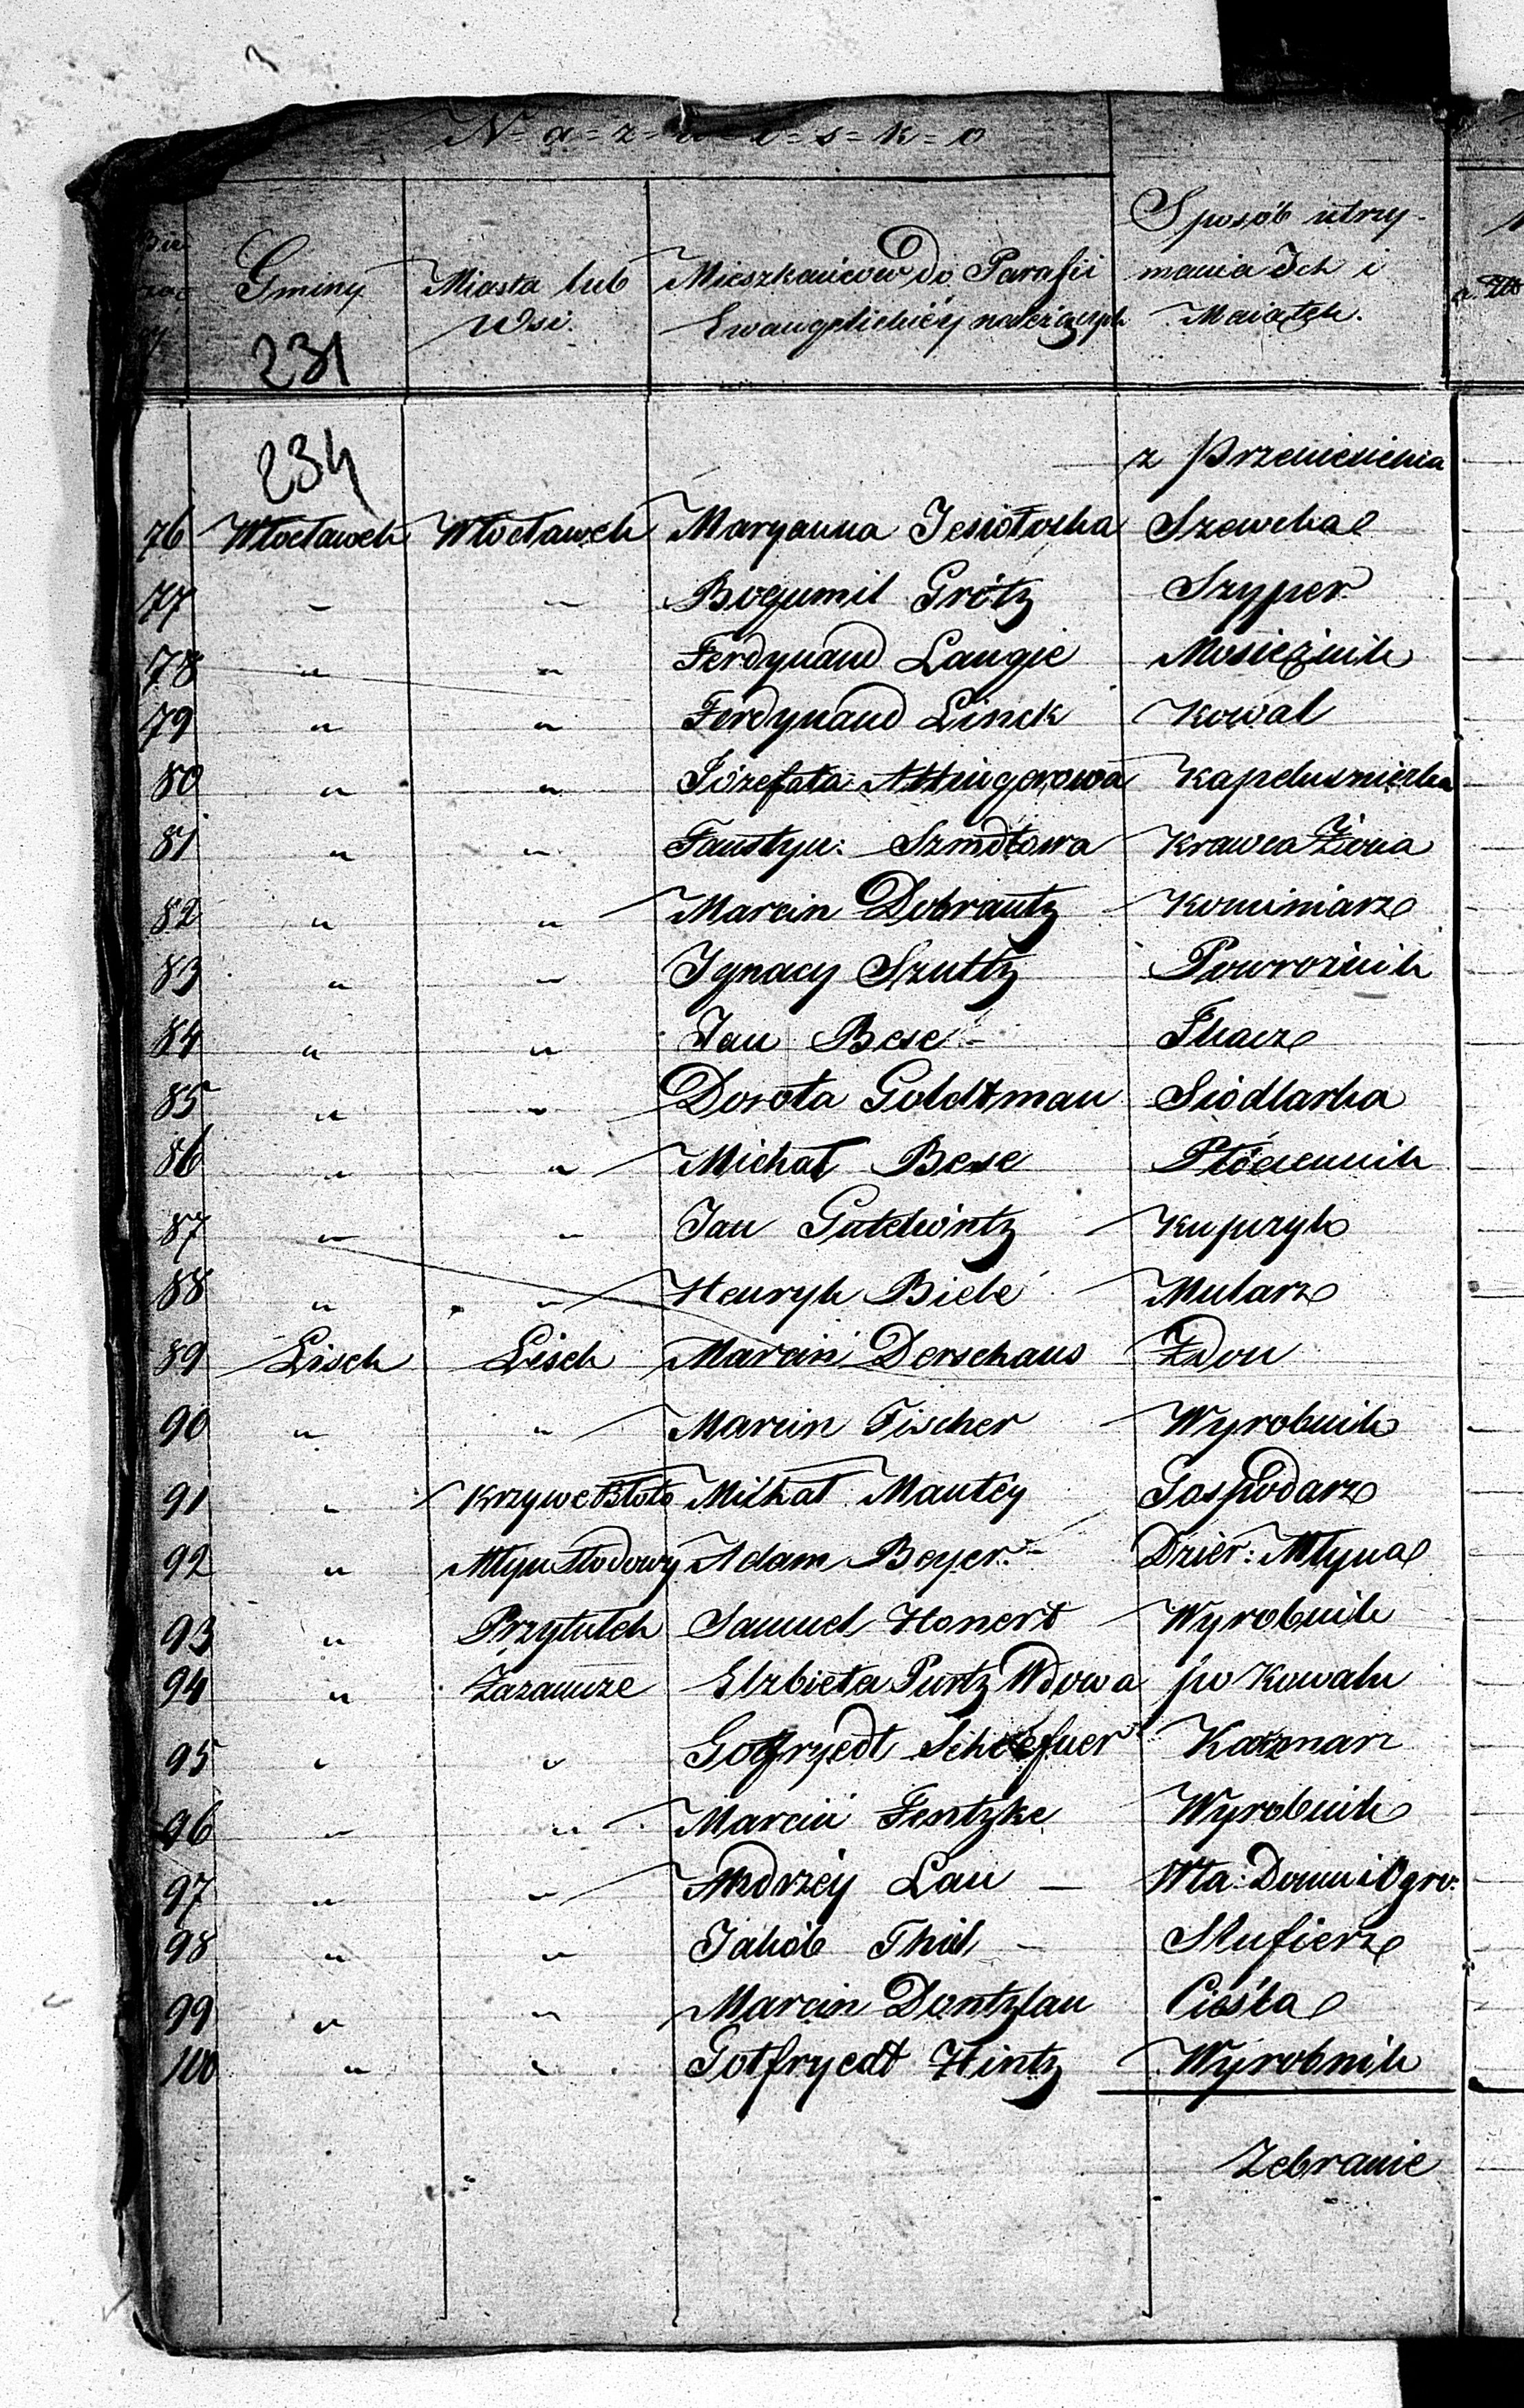 N=a=z=w=i=s=k=o
Gminy
Miasta lub
Wsi.
Mieszkańców do Parafii
Ewangelickiéy należących
Sposób utrzy-
mania Ich i
Maiątek.
231
234
z Przeniesienia
76 Włocławek Włocławek Maryanna Jesiotorka Szewcka
77 " " Bogumil Grötz Szyper
78 " " Ferdynand Langie Mosiężnik
79 " " Ferdynand Linck Kowal
80 " " Józefata Attingerowa Kapeluszniczka
81 " " Faustyn: Szmdtowa Krawca Żona
82 " " Marcin Dobrantz Kominiarz
83 " " Ignacy Szultz Powroźnik
84 " " Jan Bese - Tkacz
85 " " Dorota Goldtman Siodlarka
86 " " Michał Bese Płóciennik
87 " " Jan Kupczyk
88 " " Henryk Biele Mularz
89 Lisek Lisek Marcin Derschaus Zdon
90 " " Marcin Fischer Wyrobnik
91 " Krzywe Błoto Michał Mantéy Gospodarz
92 " Młyn Słodowy Adam Beyer - Dzier: Młyna
93 " Przytułek Samuel Honert Wyrobnik
94 " Zazamcze Elzbieta Purtz Wdowa po Kowalu
95 " " Gotfryedt Schoefner Karzmarz
96 " " Marcin Fentzke Wyrobnik
97 " " Andrzéy Lau - Wła: Domu i Ogro:
98 " " Jakób Thiel - Stufierz
99 " " Marcin Dontzlau Cieśla
100 " " Gotfryedt Hintz Wyrobnik
Zebranie